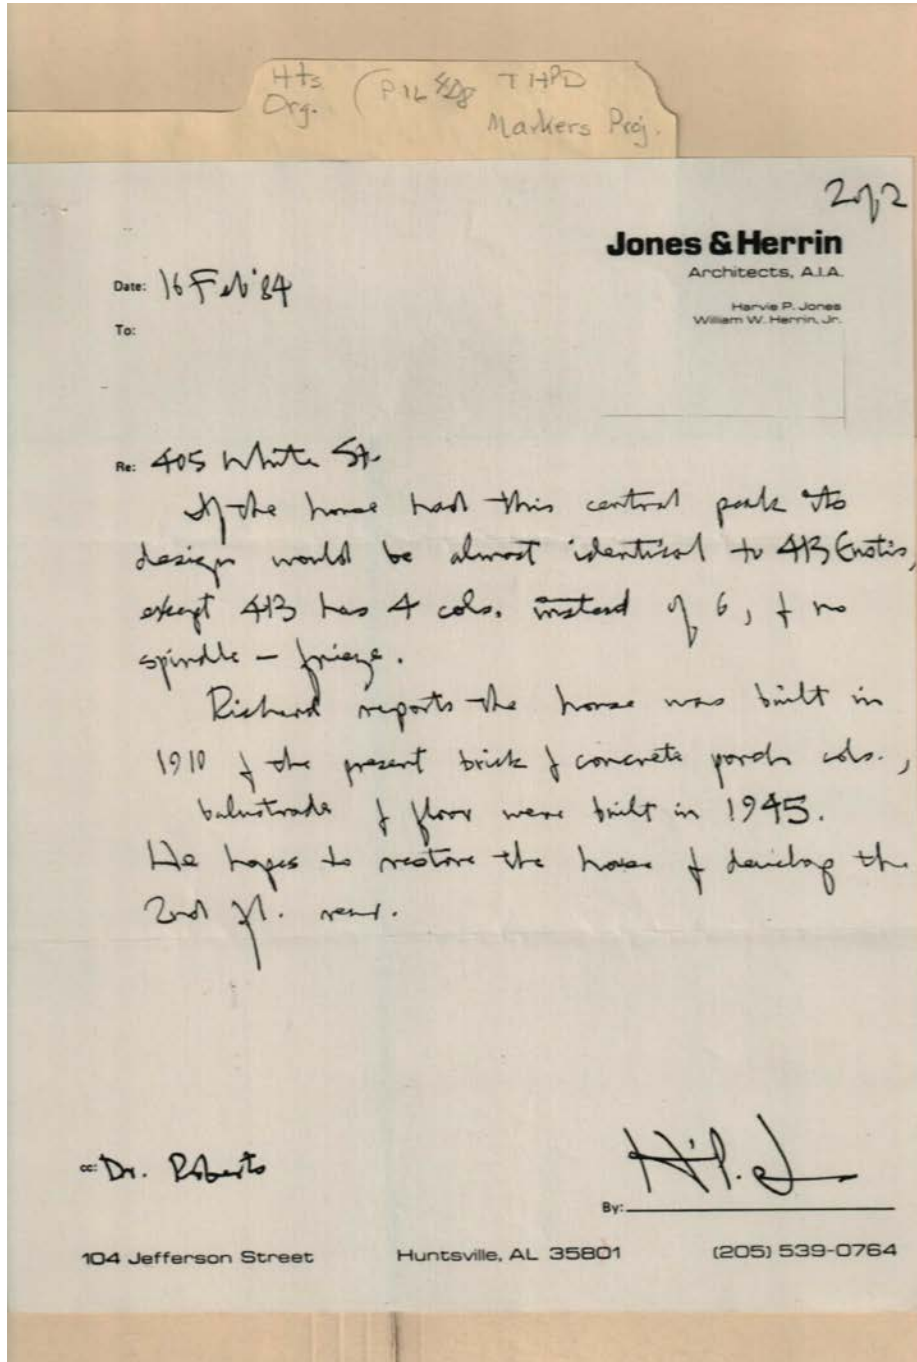 Hts. THPD
Org. (P16 428
Markers Proj.
2 of 2
Jones & Herrin
Architects, A.I.A.
Harvie P. Jones
William W. Herrin, Jr.
Date: 16 Feb '84
To:
Re: 405 White St.
If the house had this central peak its
design would be almost identical to 413 Eustis,
except 413 has 4 cols. instead of 6, & no
spindle - frieze.
Richard reports the house was built in
1910 & the present brick & concrete porch cols.,
balustrade & floor were built in 1945.
He hopes to restore the house & develop the
2nd fl. rear.
cc: Dr. Roberts
H.P.J
By:
104 Jefferson Street Huntsville, AL 35801 (205) 539-0764